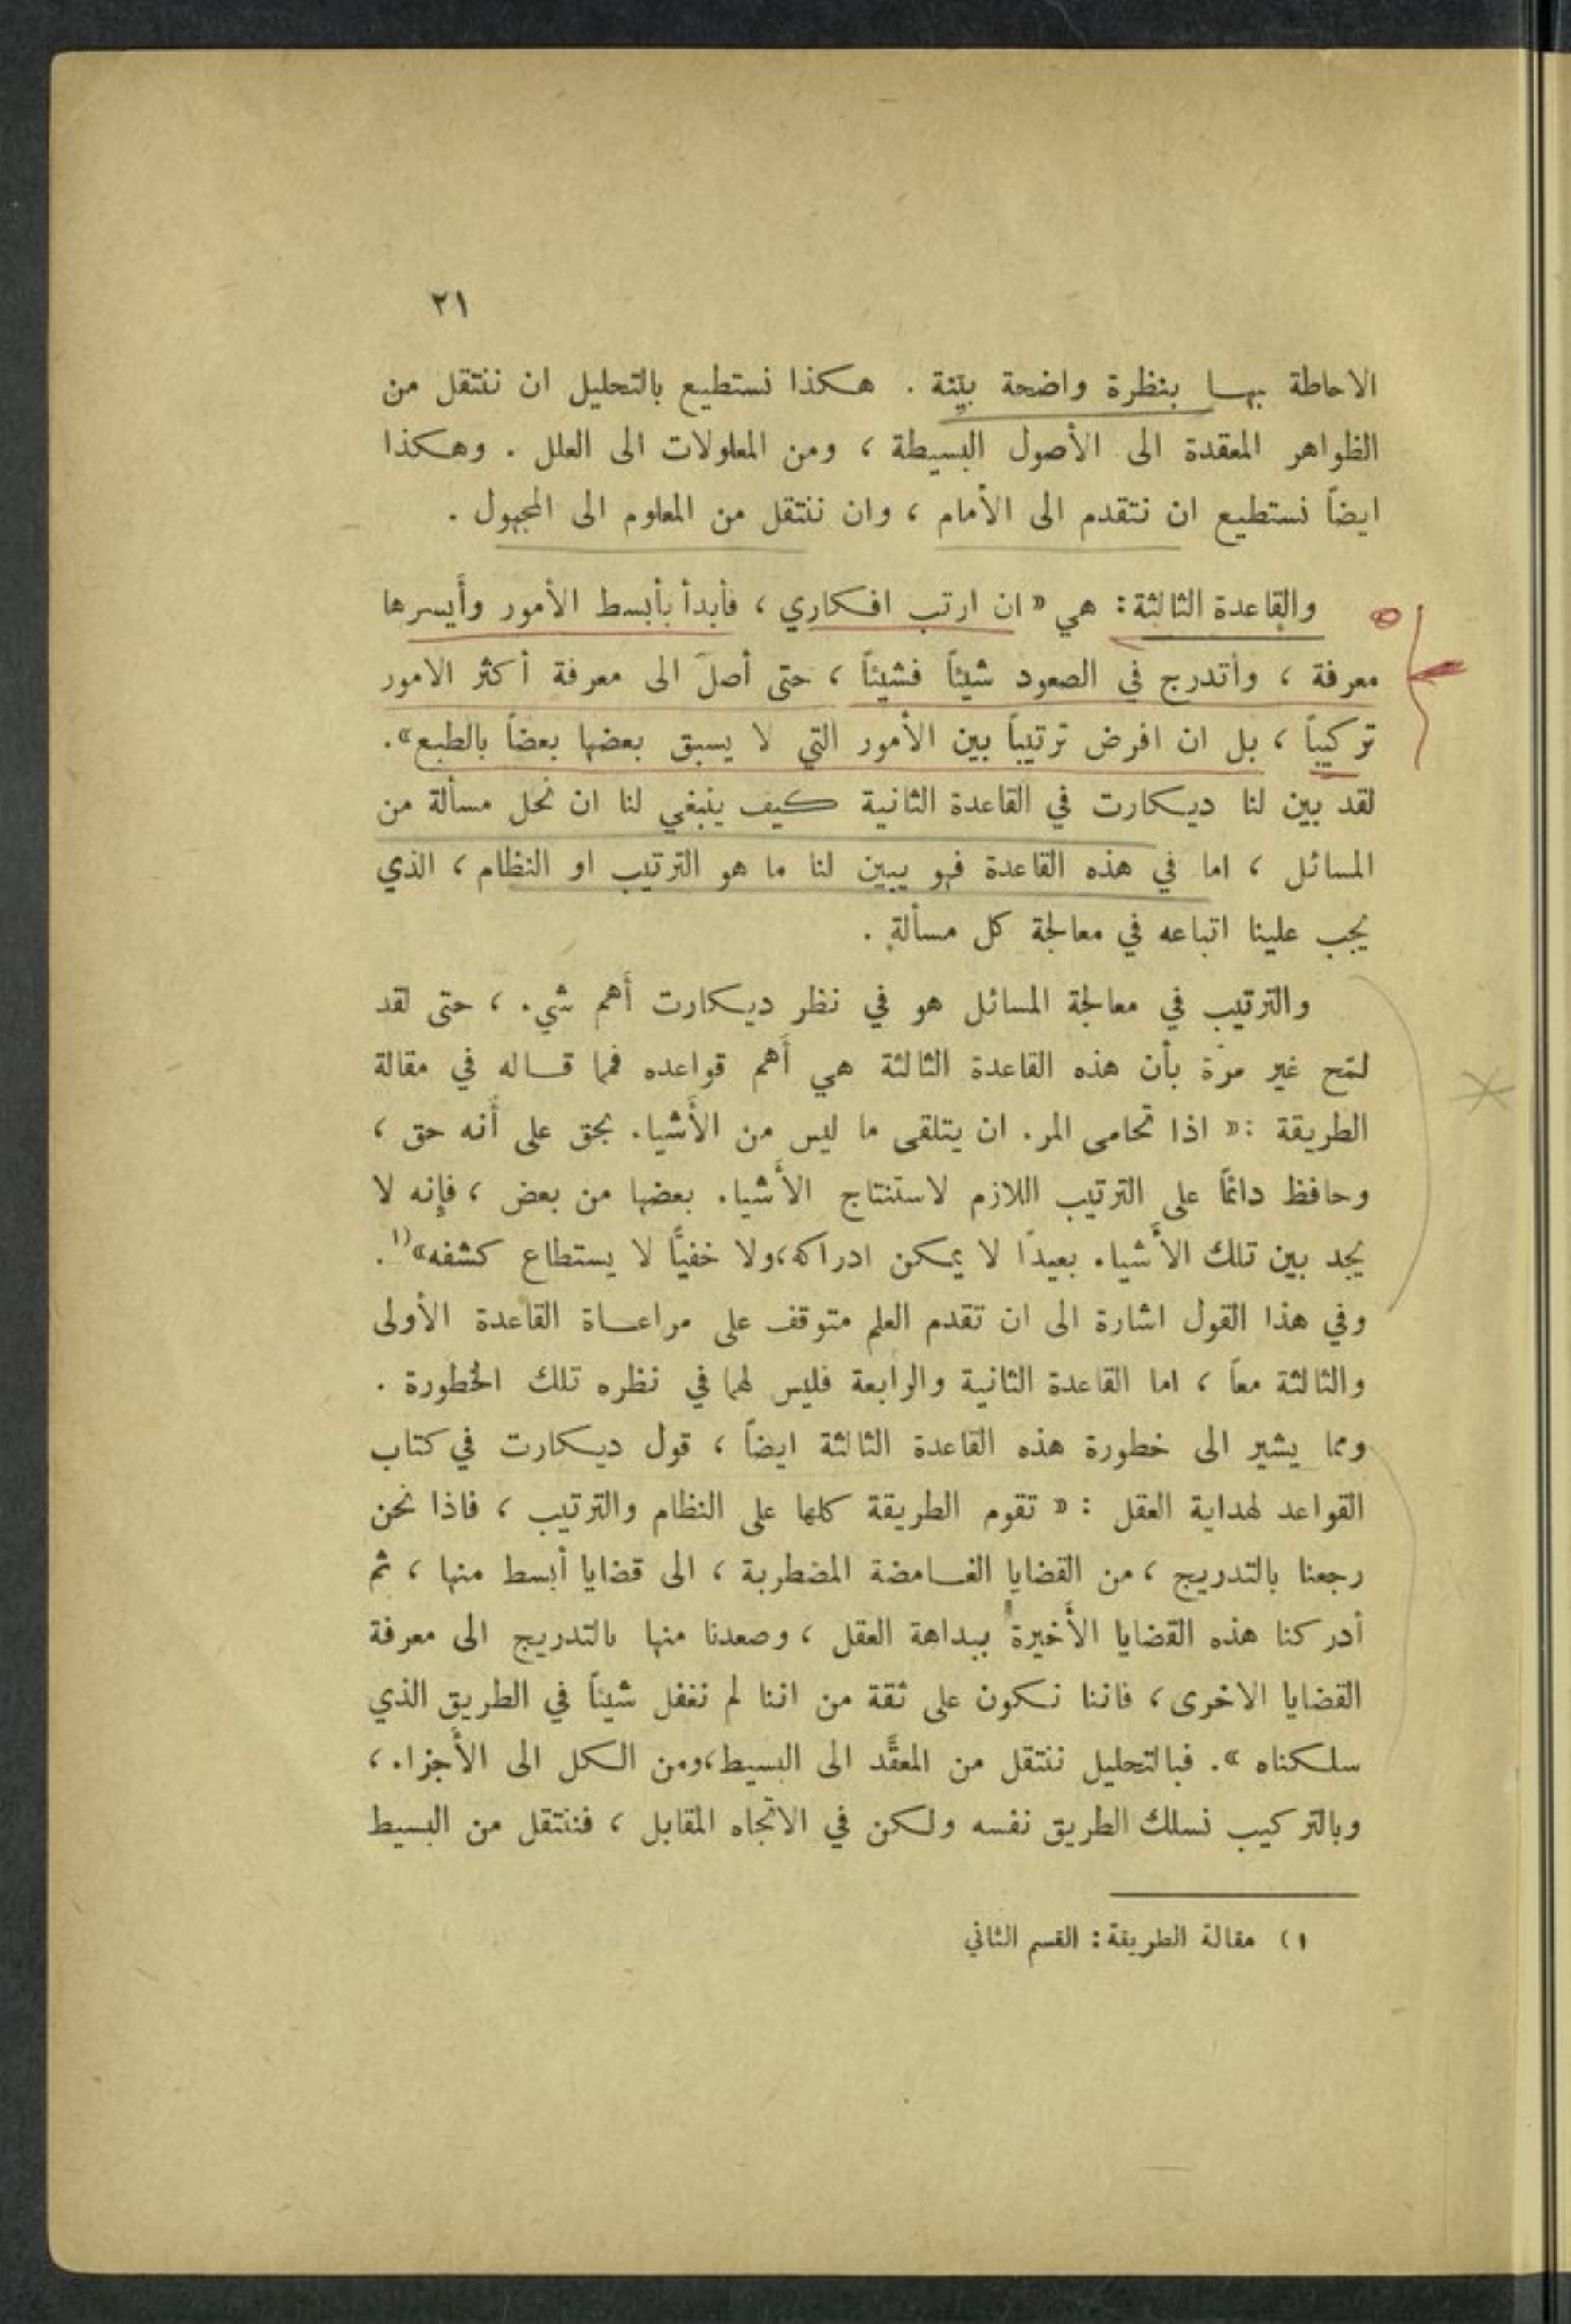 ٢١
الاحاطة بهـا بنظرة واضحة بيّنة . هكذا نستطيع بالتحليل ان ننتقل من
الظواهر المعقدة الى الأصول البسيطة ، ومن المعلولات الى العلل . وهكذا
ايضاً نستطيع ان نتقدم الى الأمام ، وان ننتقل من المعلوم الى المجهول .
والقاعدة الثالثة : هي « ان ارتب افكاري ، فأبدأ بأبسط الأمور وأَيسرها
معرفة ، وأتدرج في الصعود شيئاً فشيئاً ، حتى أصلَ الى معرفة أكثر الامور
تركيباً ، بل ان افرض ترتيباً بين الأمور التي لا يسبق بعضها بعضاً بالطبع » .
لقد بين لنا ديكارت في القاعدة الثانية كيف ينبغي لنا ان نحل مسألة من
المسائل ، اما في هذه القاعدة فهو يبين لنا ما هو الترتيب او النظام ، الذي
يجب علينا اتباعه في معالجة كل مسألة .
والترتيب في معالجة المسائل هو في نظر ديكارت أَهم شيء ، حتى لقد
لمّح غير مرّة بأن هذه القاعدة الثالثة هي أَهم قواعده فمما قـاله في مقالة
الطريقة : « اذا تحامى المرء ان يتلقى ما ليس من الأَشياء بحق على أَنه حق ،
وحافظ دائماً على الترتيب اللازم لاستنتاج الأَشياء بعضها من بعض ، فإِنه لا
يجد بين تلك الأَشياء بعيدًا لا يمكن ادراكه ، ولا خفيًّا لا يستطاع كشفه »١) .
وفي هذا القول اشارة الى ان تقدم العلم متوقف على مراعـاة القاعدة الأولى
والثالثة معاً ، اما القاعدة الثانية والرابعة فليس لهما في نظره تلك الخطورة .
ومما يشير الى خطورة هذه القاعدة الثالثة ايضاً ، قول ديكارت في كتاب
القواعد لهداية العقل : « تقوم الطريقة كلها على النظام والترتيب ، فاذا نحن
رجعنا بالتدريج ، من القضايا الغـامضة المضطربة ، الى قضايا أبسط منها ، ثم
أدركنا هذه القضايا الأَخيرة ببداهة العقل ، وصعدنا منها بالتدريج الى معرفة
القضايا الاخرى ، فاننا نكون على ثقة من اننا لم نغفل شيئاً في الطريق الذي
سلكناه » . فبالتحليل ننتقل من المعقَّد الى البسيط ، ومن الكل الى الأَجزاء ،
وبالتركيب نسلك الطريق نفسه ولكن في الاتجاه المقابل ، فننتقل من البسيط
١) مقالة الطريقة : القسم الثاني